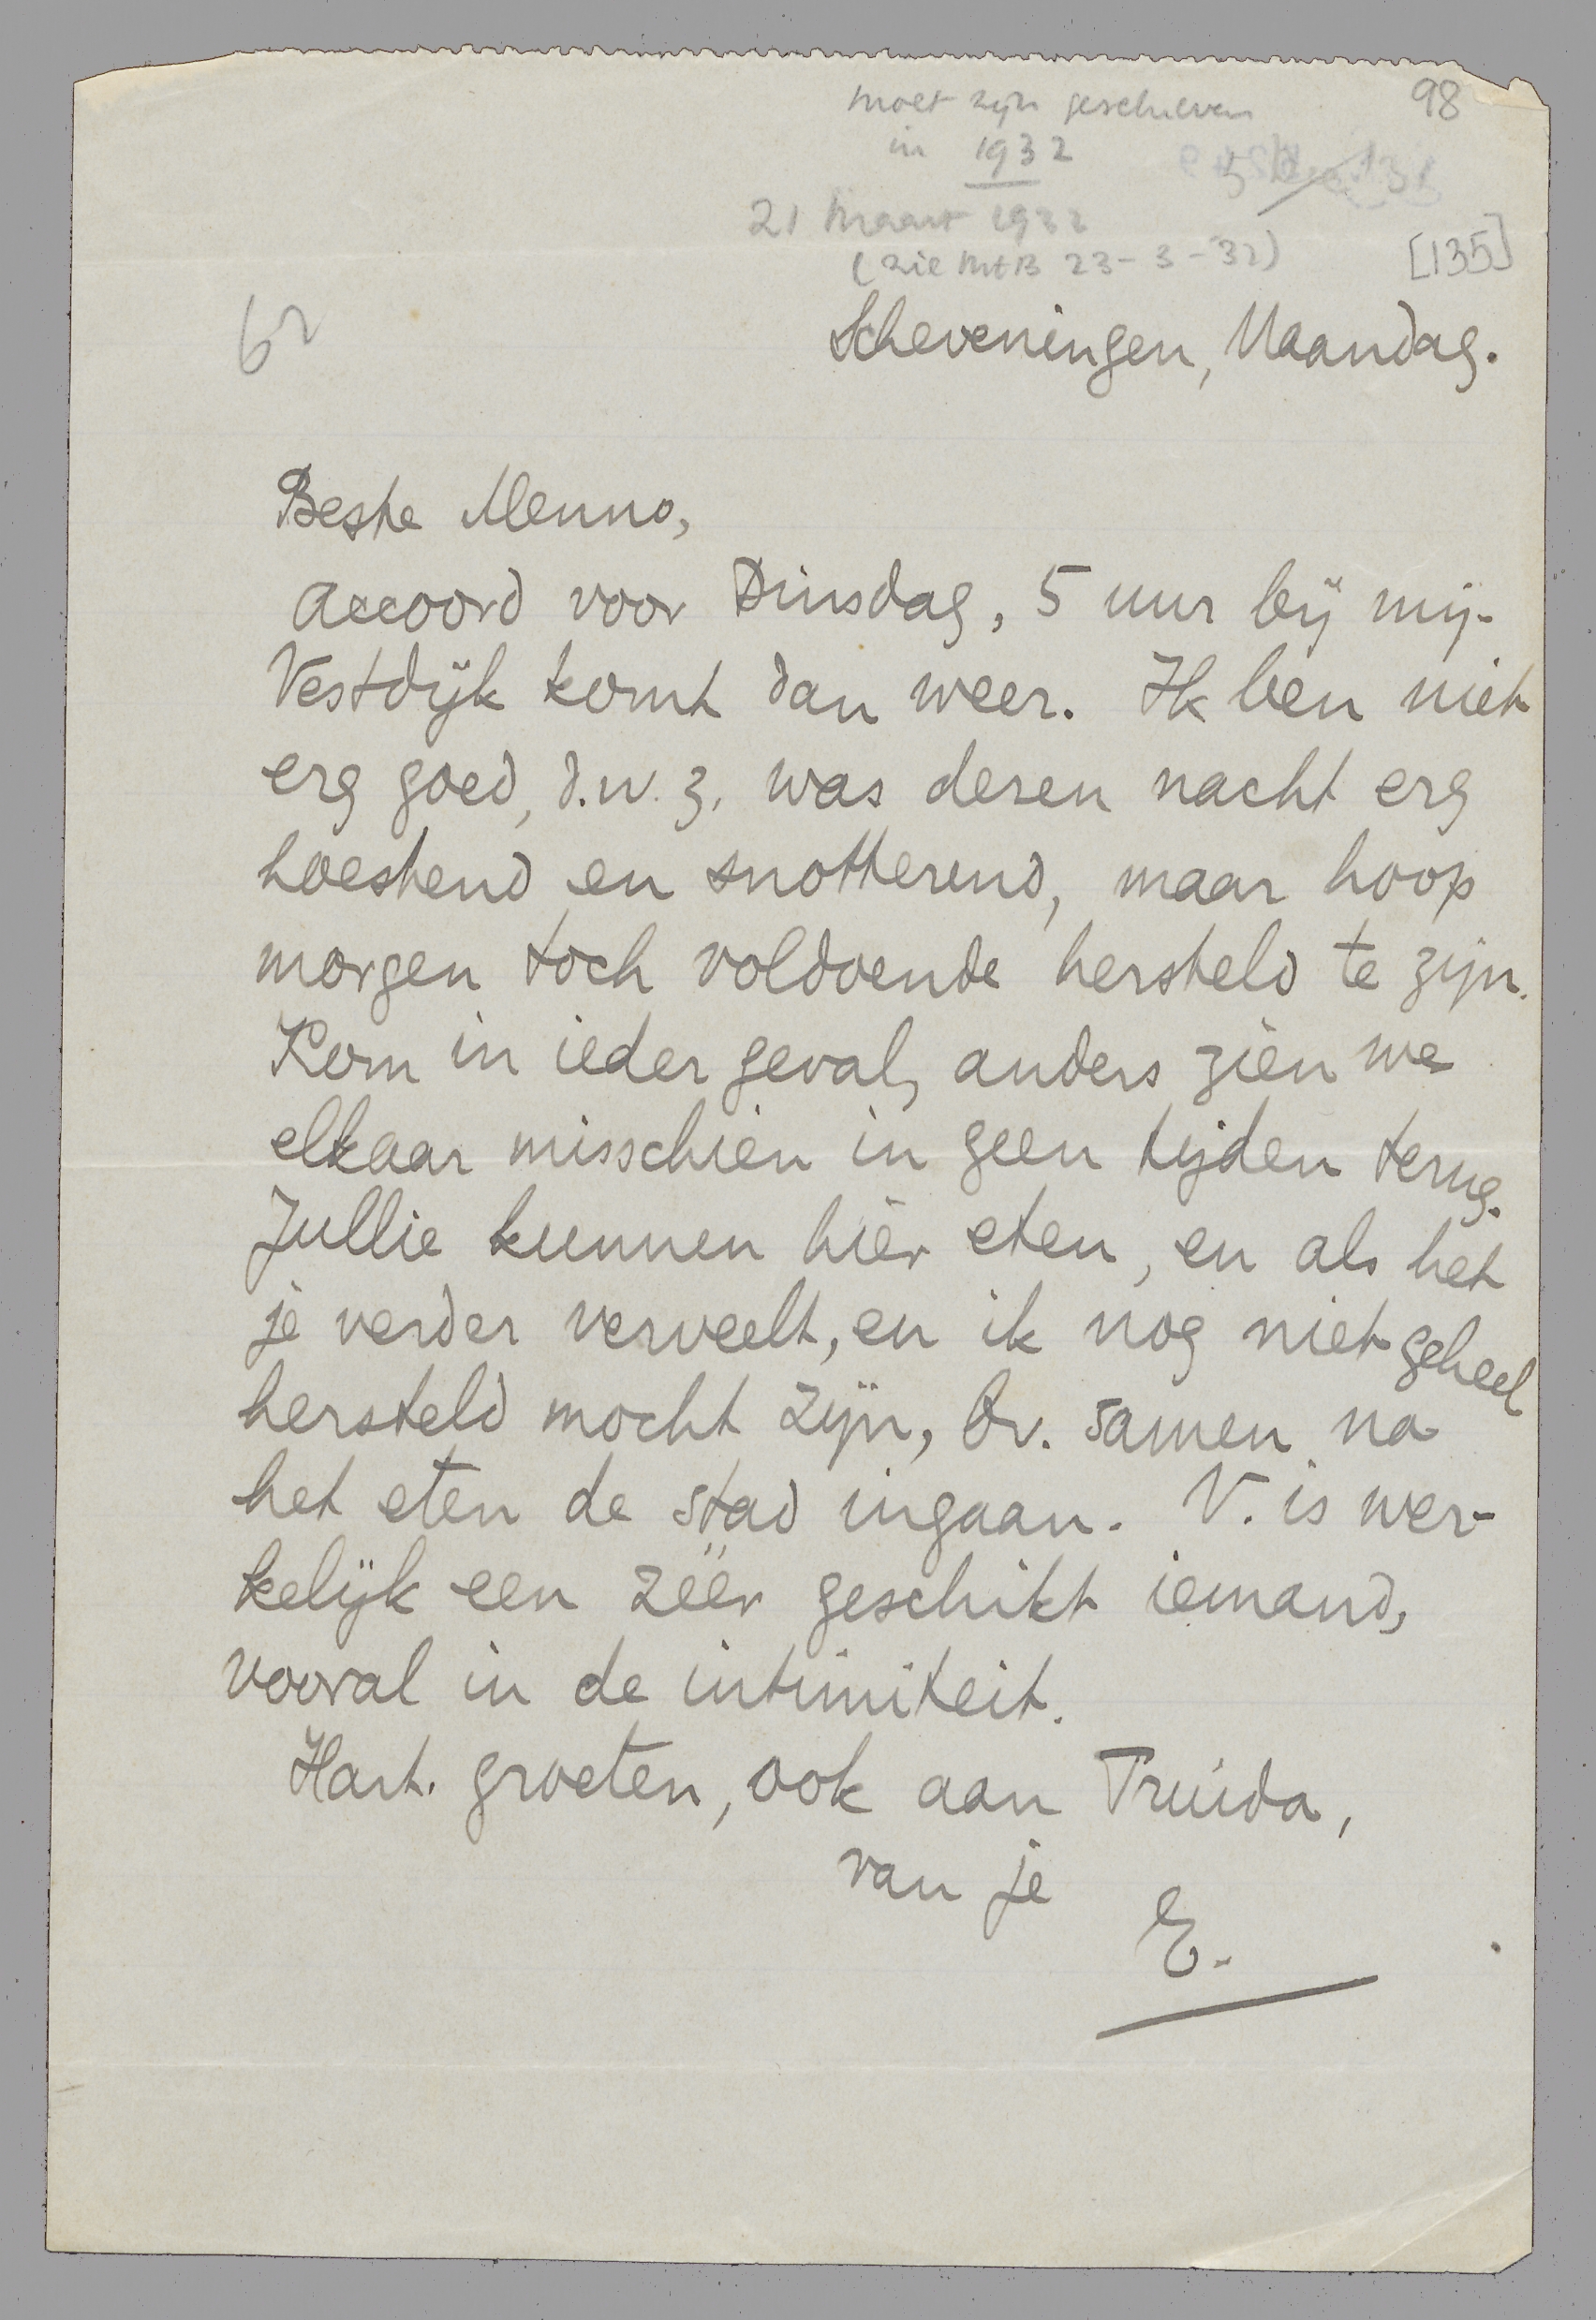 98
moet zijn geschreven
in 1932
21 Maart 1932
(zie MtB 23-3-'32)
[135]
62
Scheveningen, Maandag.
Beste Menno,
Accoord voor Dinsdag, 5 uur bij mij.
Vestdijk komt dan weer. Ik ben niet
erg goed, d.w.z. was dezen nacht erg
hoestend en snotterend, maar hoop
morgen toch voldoende hersteld te zijn.
Kom in ieder geval, anders zien we
elkaar misschien in geen tijden terug.
Jullie kunnen hier eten, en als het
je verder verveelt, en ik nog niet geheel
hersteld mocht zijn, bv. samen na
het eten de stad ingaan. V. is wer-
kelijk een zéér geschikt iemand,
vooral in de intimiteit.
Hart. groeten, ook aan Truida,
van je
E.